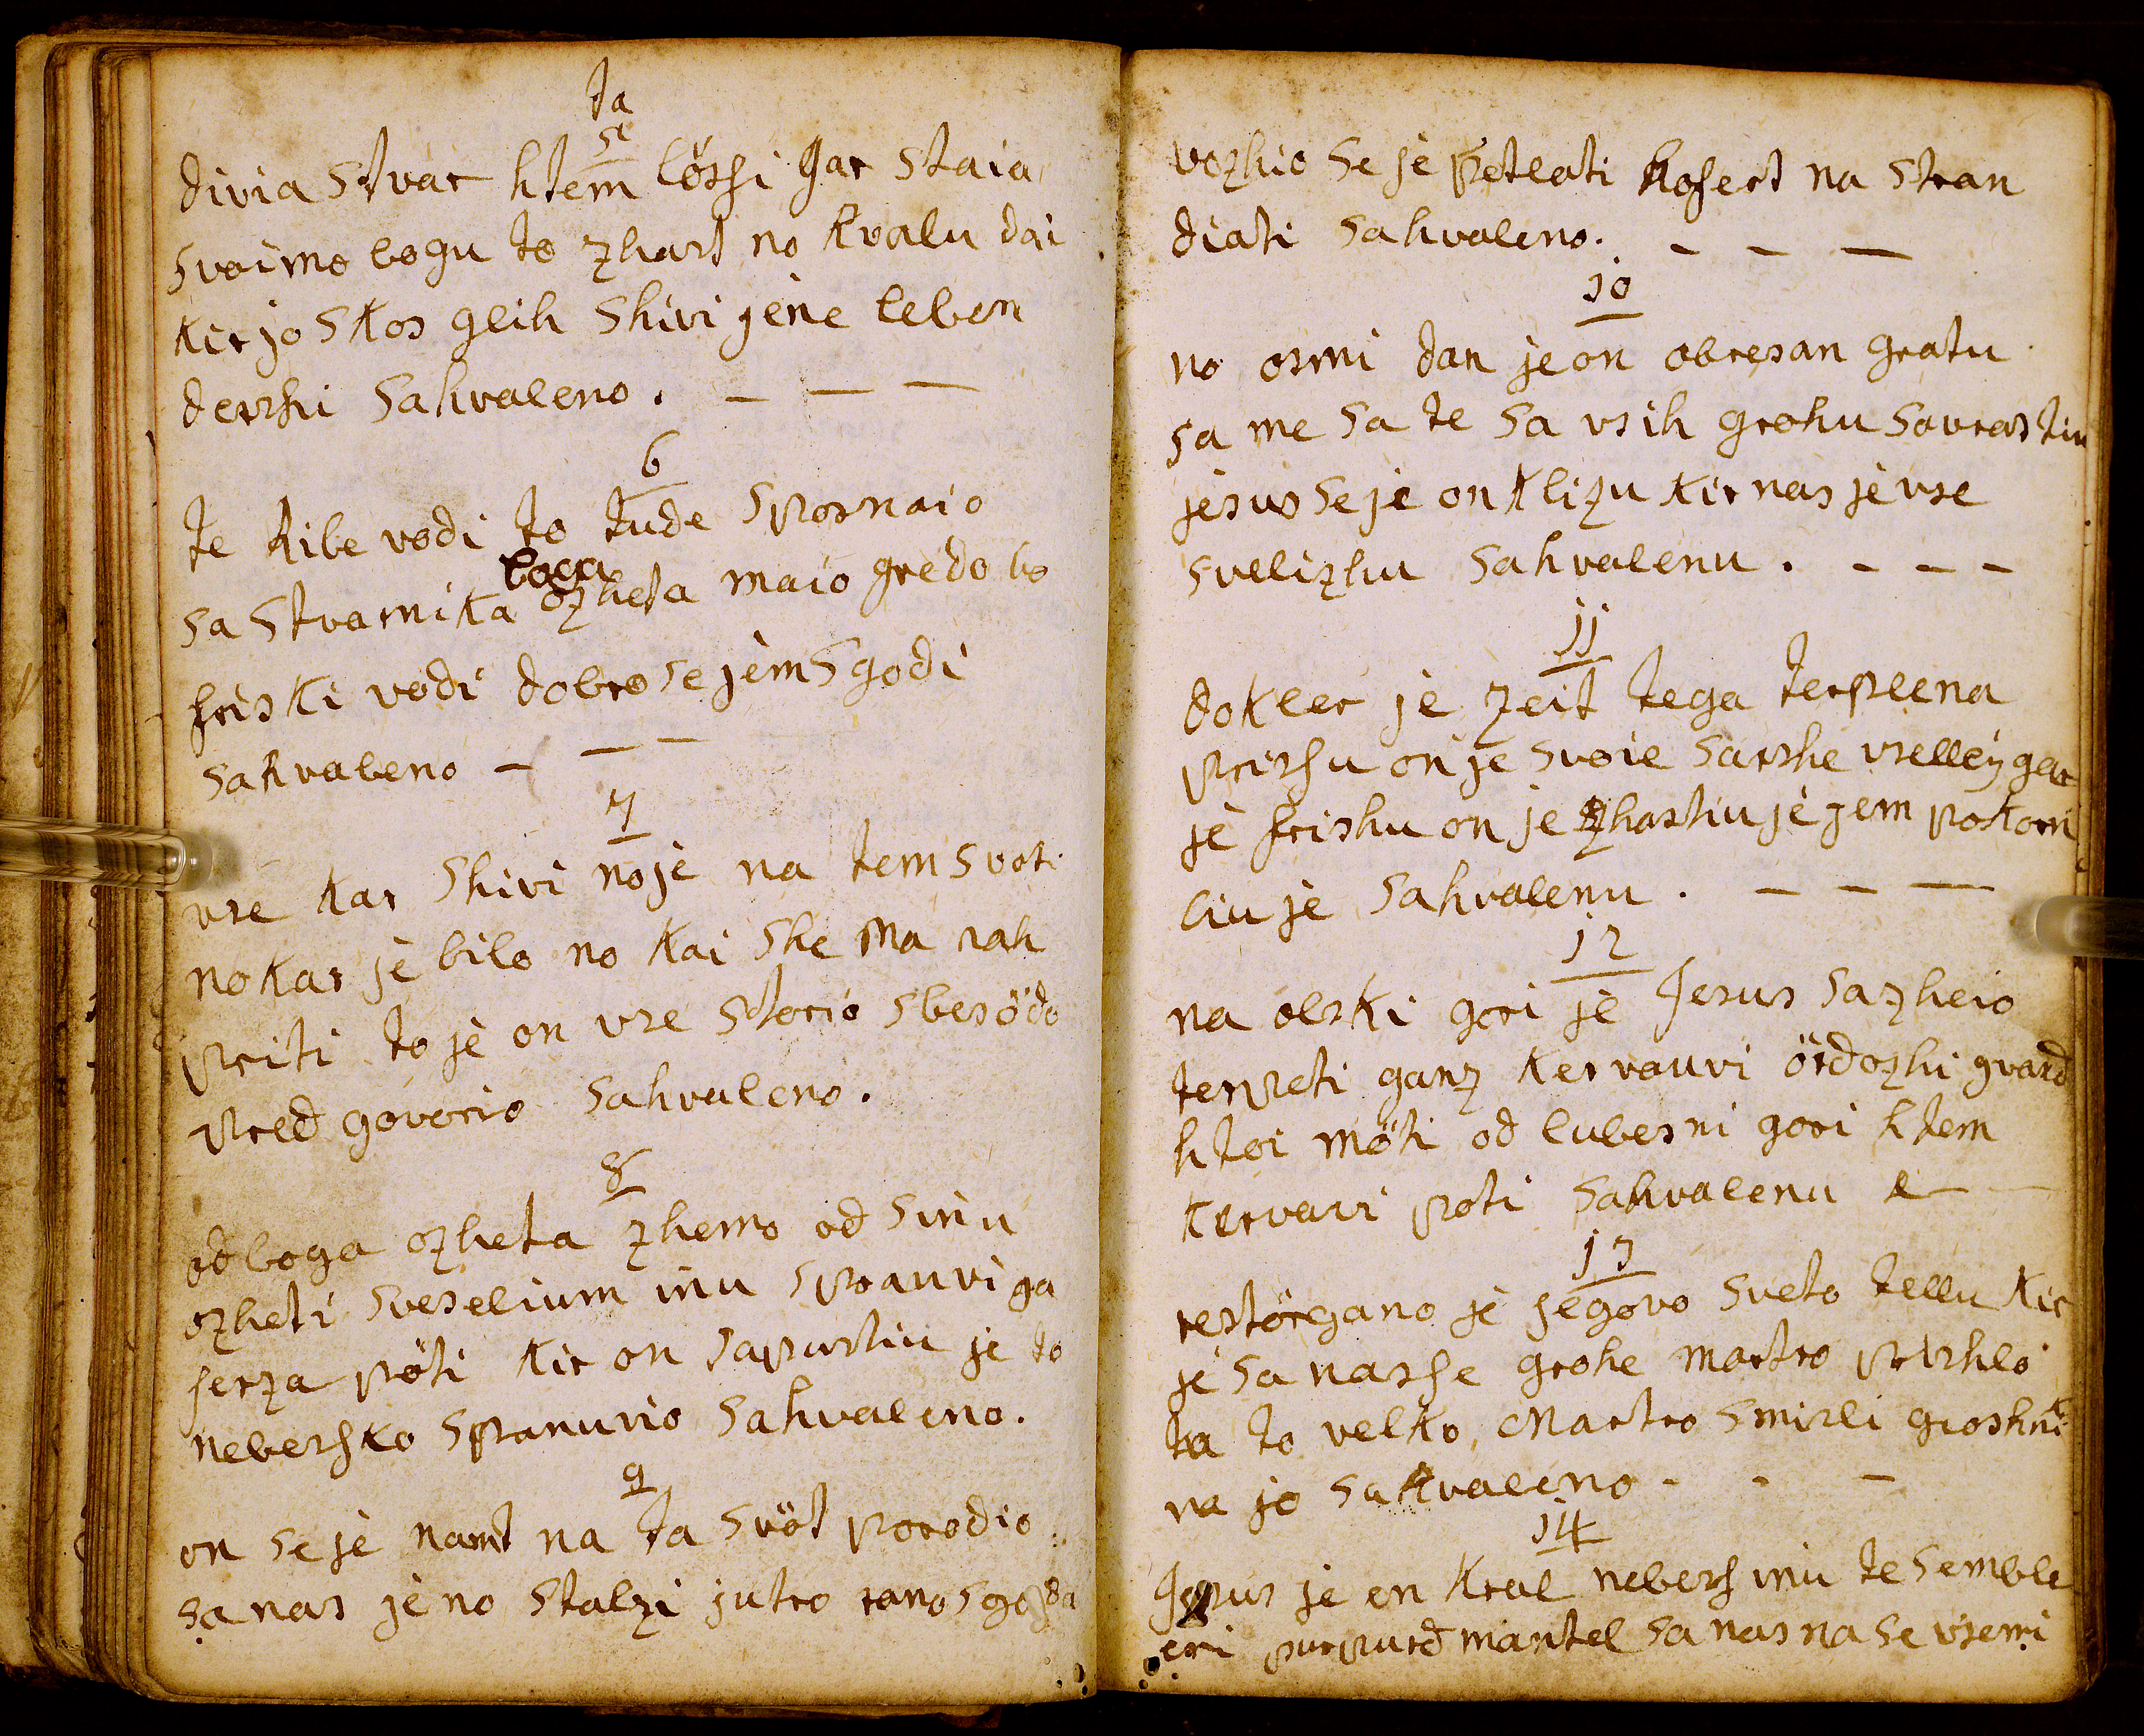 ta
5
divia stvar ktem lössi gar staia
svoimo bogu to zhast no kvalu dai
kir jo skos gleih shivi jene leben
dershi sahvaleno. — — —
6
te Ribe vodi to tude sposnaio
boga
sa stvarnika ozheta maio gredo bo
friski vodi dobro se jem sgodi
sahvaleno — — —
7
vse kar shivi no je na tem svoti
no kar je bilo no kai she ma nah
priti to je on vse storio sbesödo
pred govorio sahvaleno.
8
od boga ozheta zhemo od sinu
ozheti sveselium inu sprauri ga
serza pöti kir on sapustiu je to
nebersko spranurio sahvaleno.
9
on se je namt na ta svöt porodio
sa nas je no stalzi jutro rano
vozhio se je petlati kofert na stran
diati sahvaleno. — — —
10
no osmi dan je on obresan gratu
sa me sa te sa vsih grohu savrastiu
jesus se je on klizu kir nas je vse
svelizhu sahvalenu. — — —
11
dokler je zeit tega terplena
prishu on je svoie sarshe vselley gar
je frishu on je zhastiu je jem pokorn
liu je sahvalenu. — — —
12
na olski gori je Jesus sazheio
terpeti ganz kervauvi ördozhi gvard
ktoi möti od lubesni gori ktem
kervavi poti sahvalenu
13
restörgano je jegovo sveto tellu kir
je sa nasse grohe martro prishlo
ta to velko Martro smirli groshni
va jo sahvaleno - - -
14
Jesus je en kral nebers inu te semble
eri purpurd mantel sa nas na se vsemi